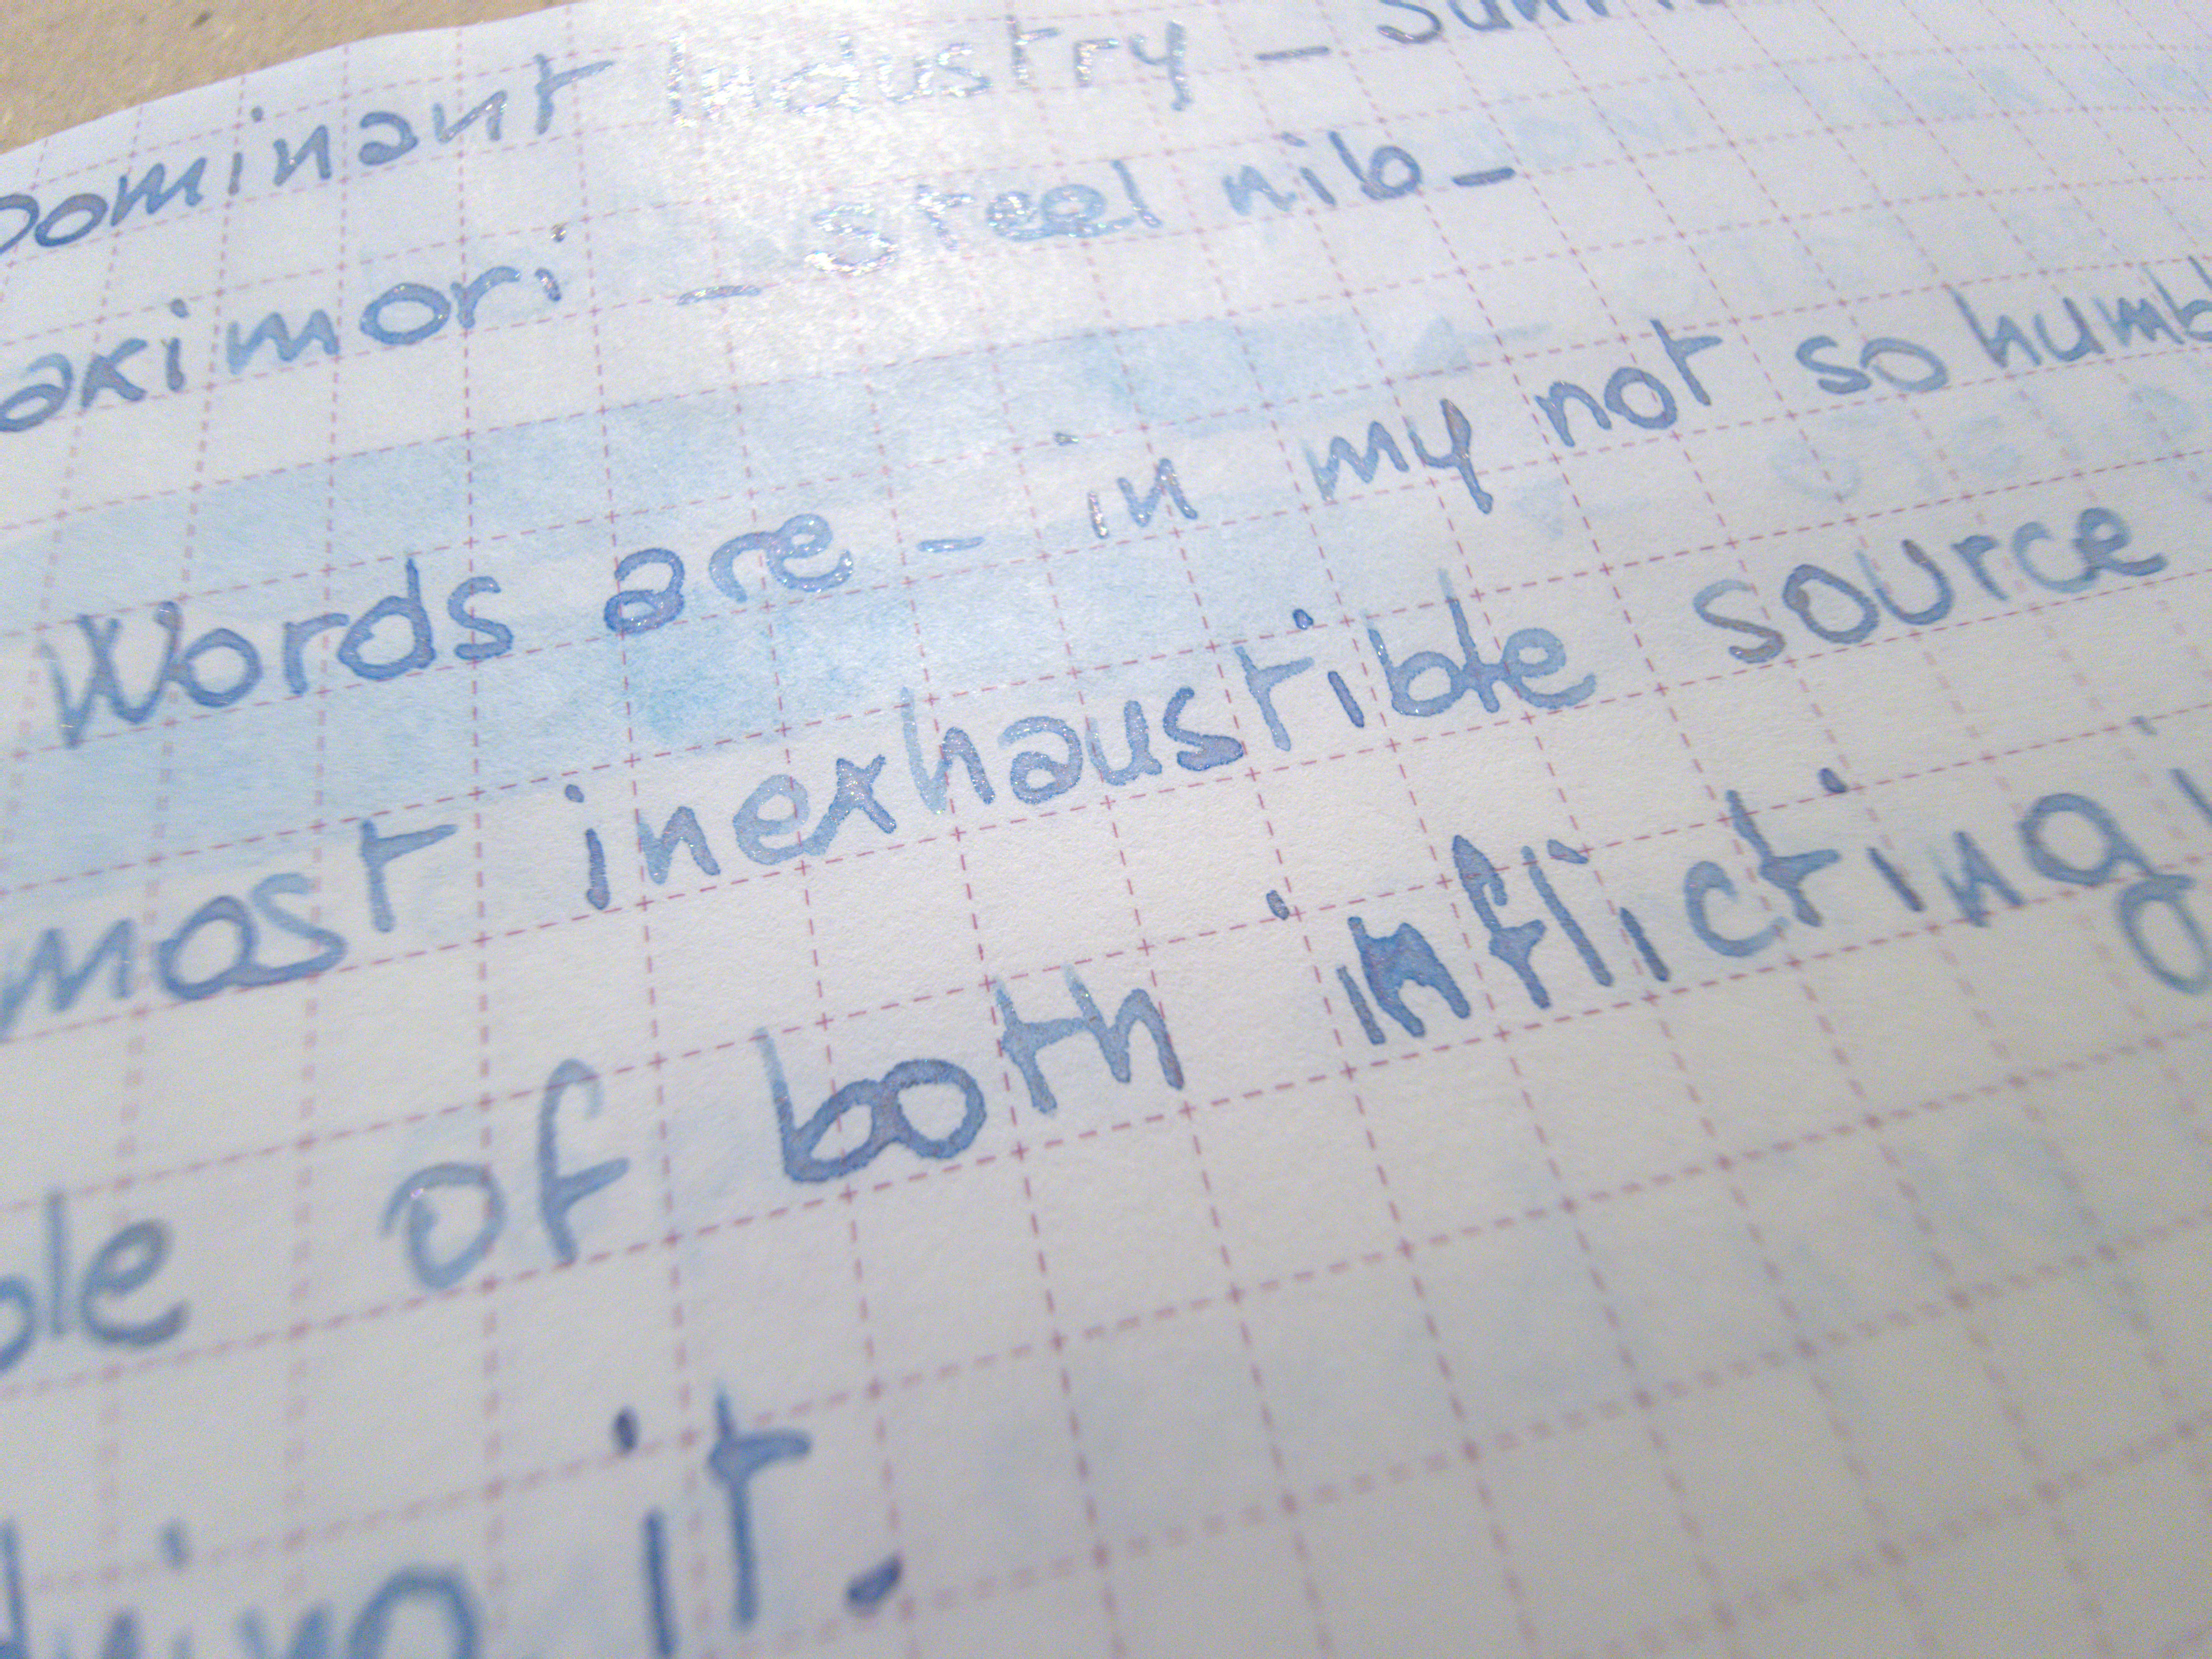 Dominant Industry -
- steel nib -
Words are - in my not so
most inexhaustible source
of both inflicting
it.